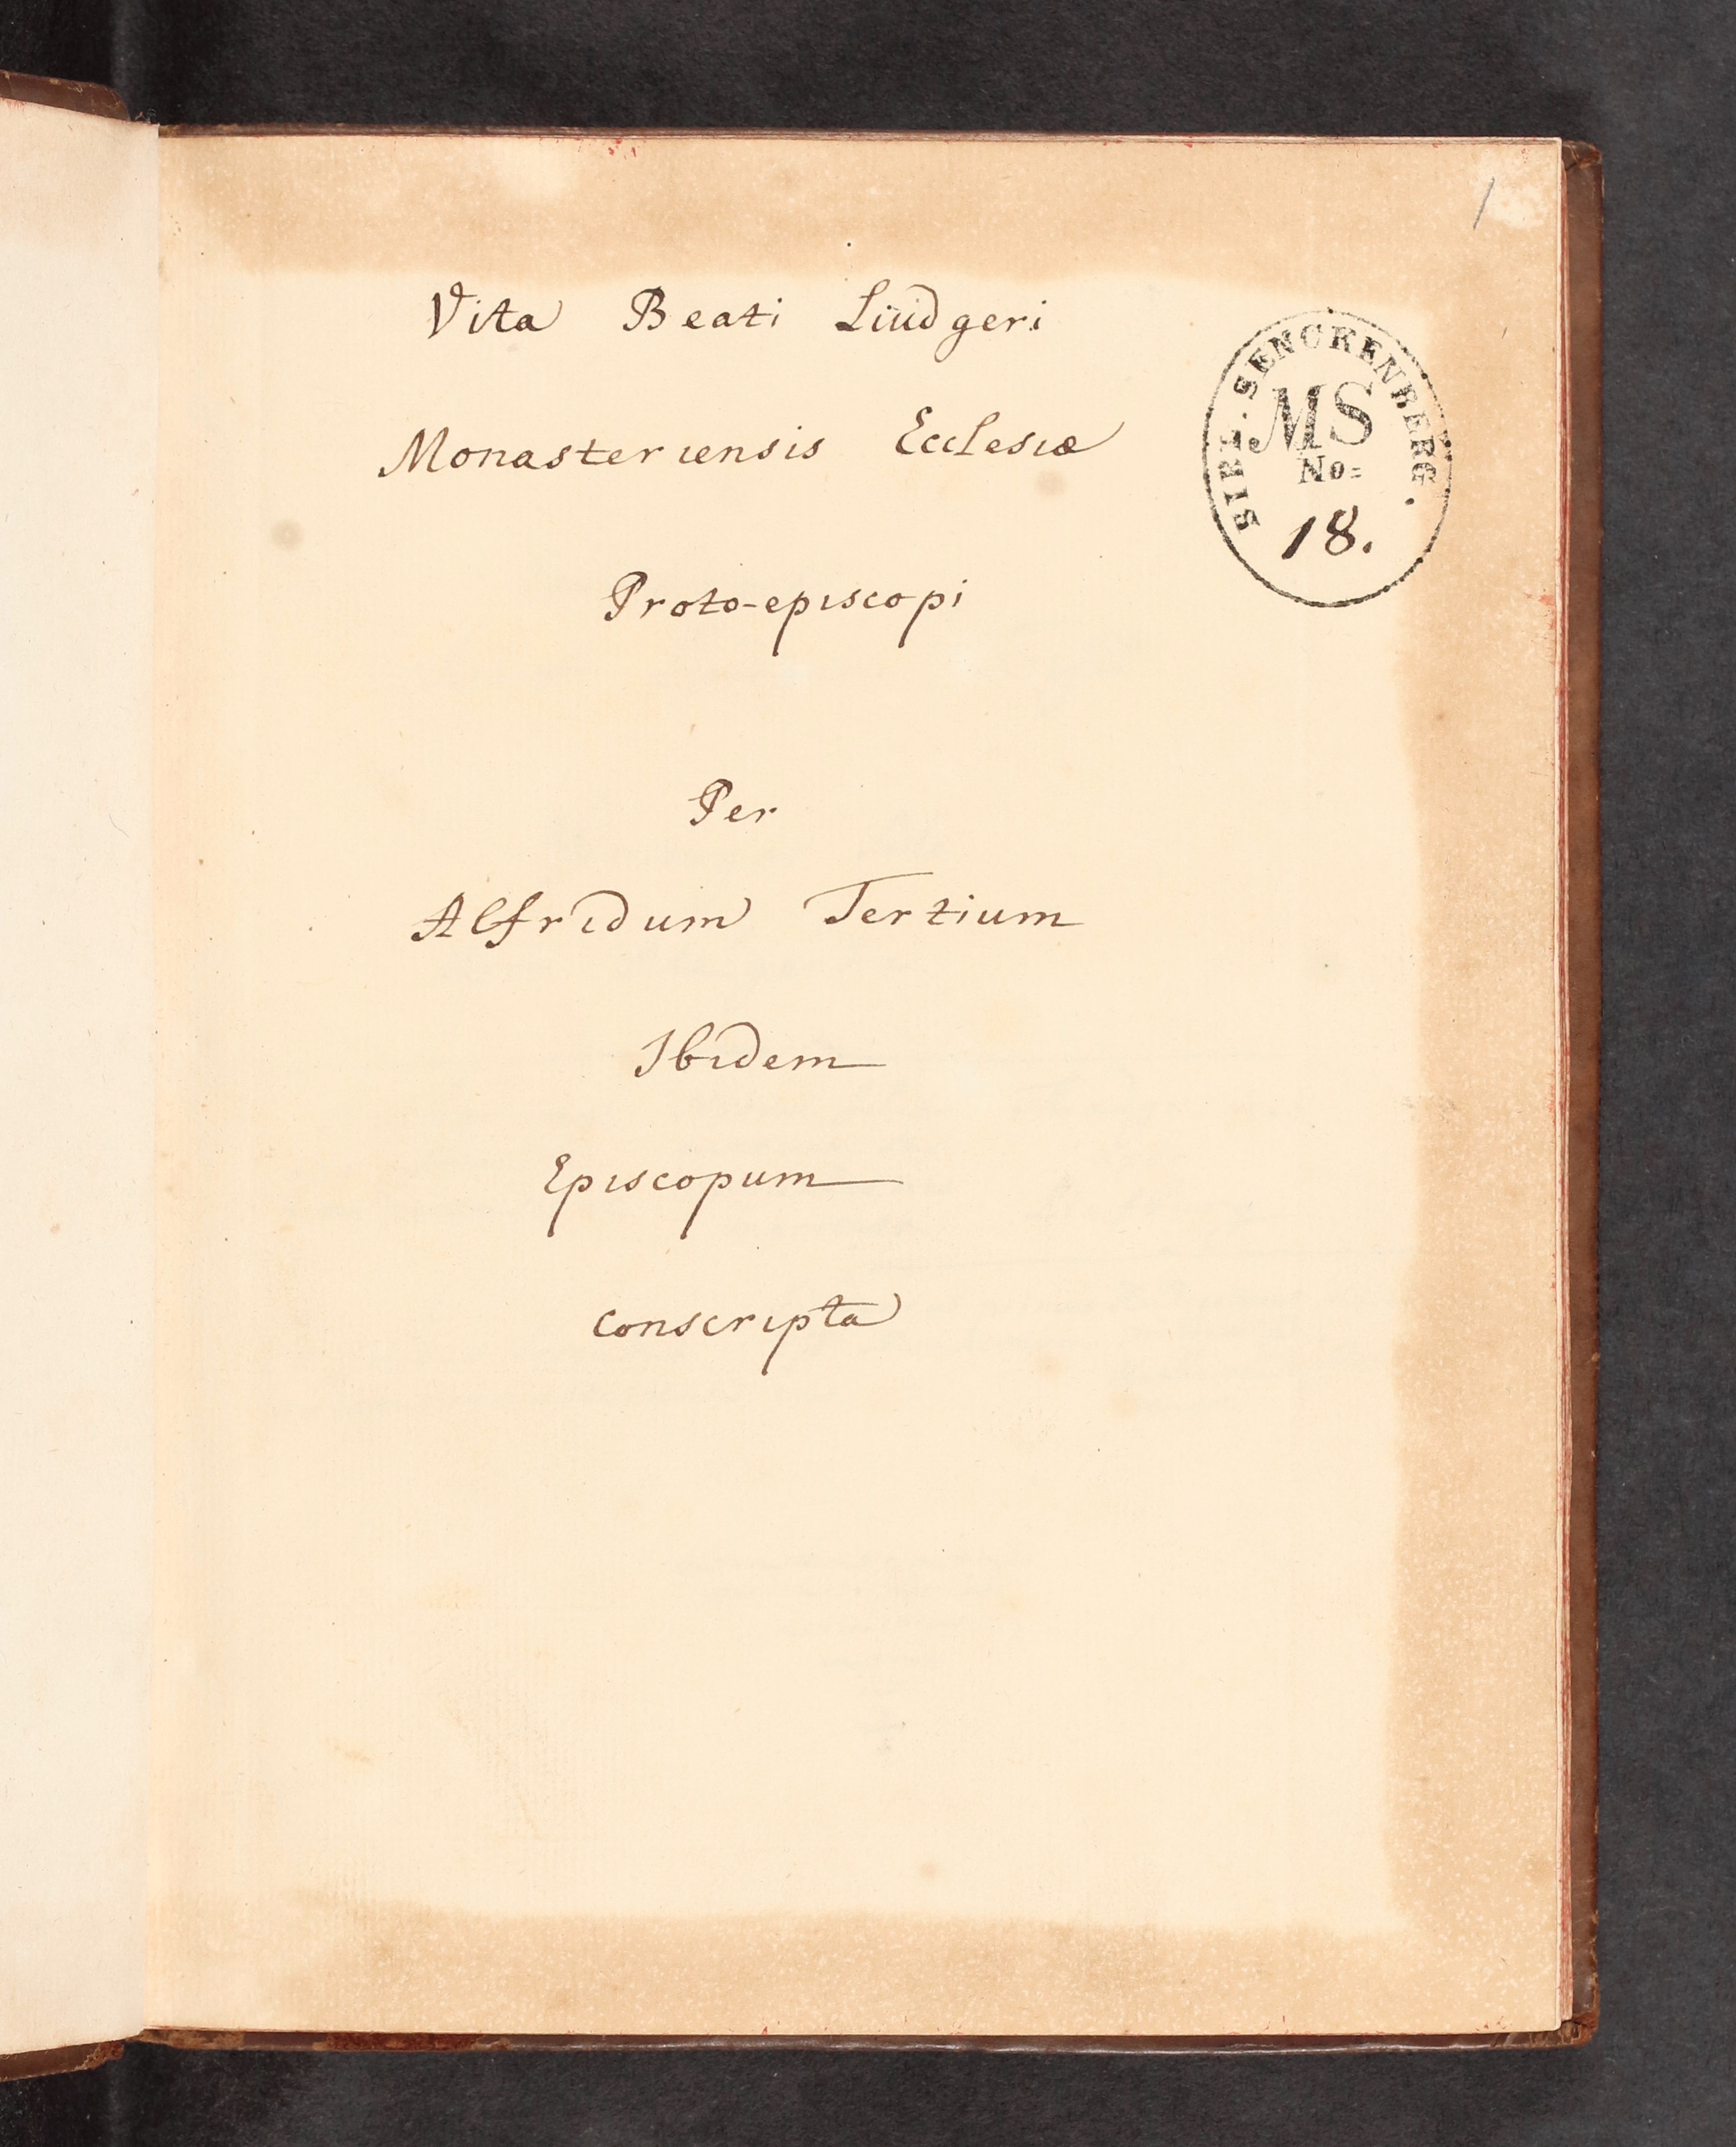 1
Vita Beati Liudgeri
Monasteriensis Ecclesiæ
Proto-episcopi
BIBL. SENCKENBERG.
MS
No=
18.
Per
Alfridum Tertium
Ibidem
Episcopum
conscripta